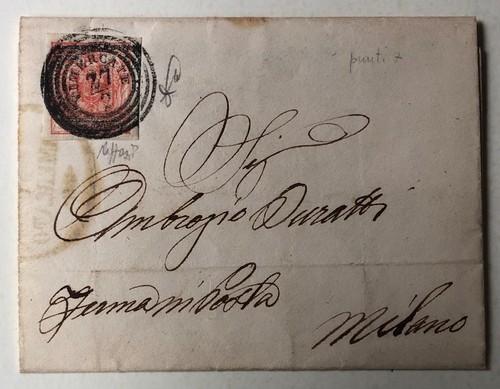 VIMERCATE
27
punti 7
Sig
Ambrogio Duratti
Ferma in Posta
Milano